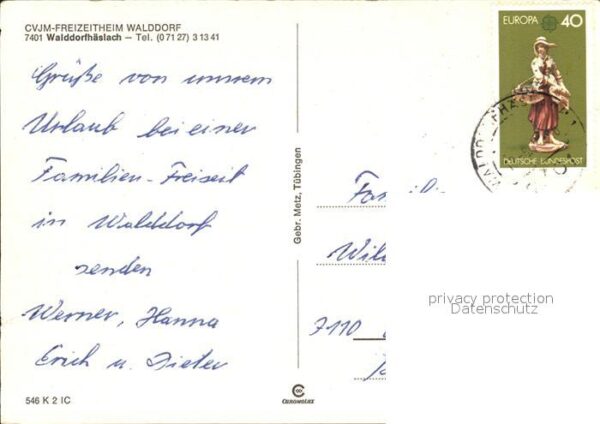 CVJM-FREIZEITHEIM WALDDORF
7401 Walddorfhäslach – Tel. (0 71 27) 3 13 41
Grüße von unserem
Urlaub bei einer
Familien-Freizeit
in Walddorf
senden
Werner, Hanna
Erich u. Dieter
546 K 2 IC
Gebr. Metz, Tübingen
CHROMOLUX
EUROPA 40
DEUTSCHE BUNDESPOST
Fa
Wil
7110
privacy protection
Datenschutz